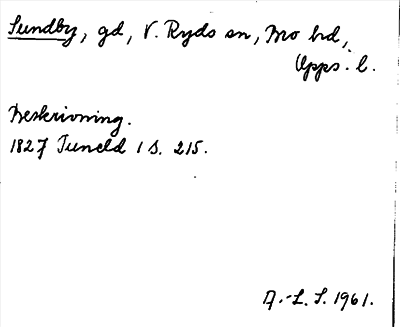 Sundby, gd, V. Ryds sn, Bro hd,
Upps. l.
Beskrivning.
1827 Tuneld 1 s. 215.
A.-L. S. 1961.